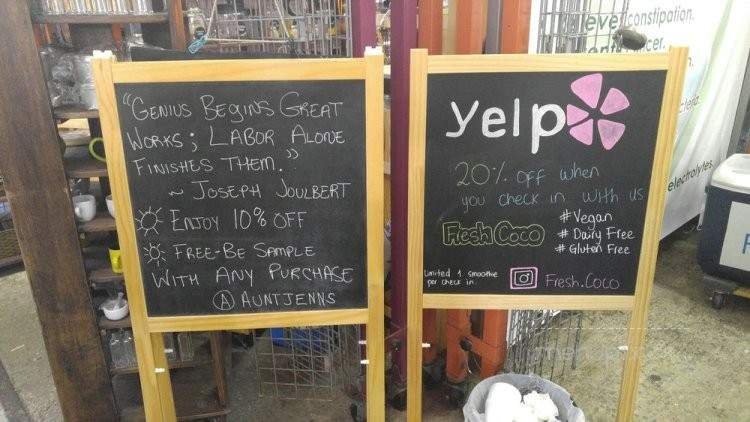 "GENIUS BEGINS GREAT
WORKS; LABOR ALONE
FINISHES THEM."
~ JOSEPH JOULBERT
ENJOY 10% OFF
FREE-BE SAMPLE
WITH ANY PURCHASE
@ AUNTJENNS
yelp
20% OFF when
you check in with us
Fresh Coco
#Vegan
# Dairy Free
# Gluten Free
Limited 1 smoothie
per check in.
Fresh.Coco
constipation.
electrolytes.